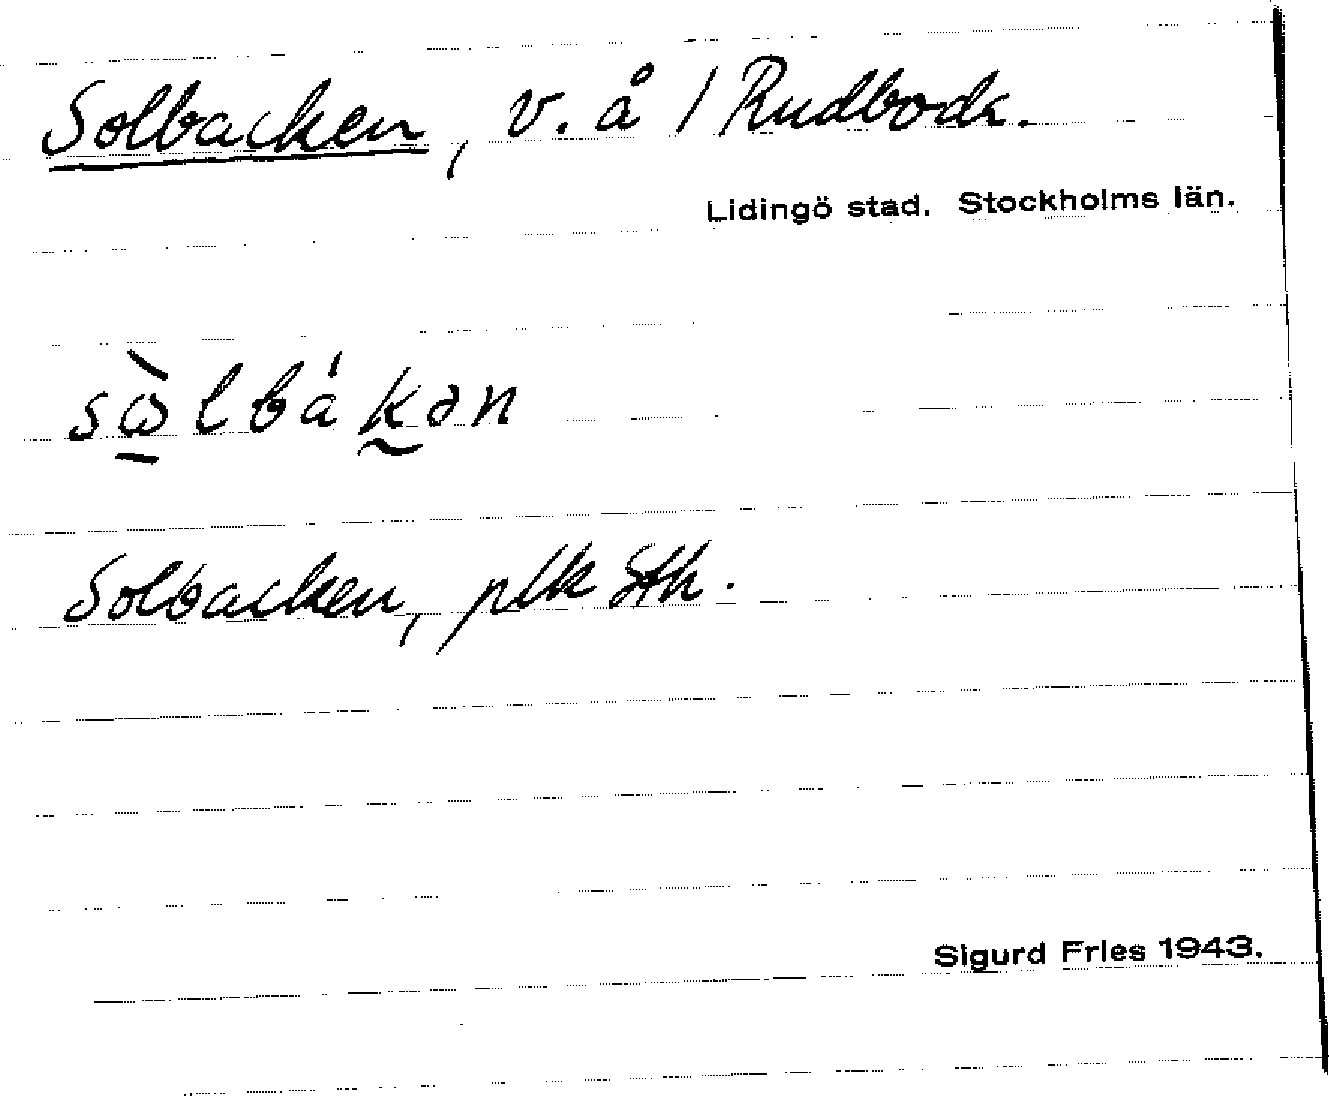 Solbacken, v. å / Rudboda.
Lidingö stad. Stockholms län.
sὼ̲lbákən
Solbacken, plk Sth.
Sigurd Fries 1943.